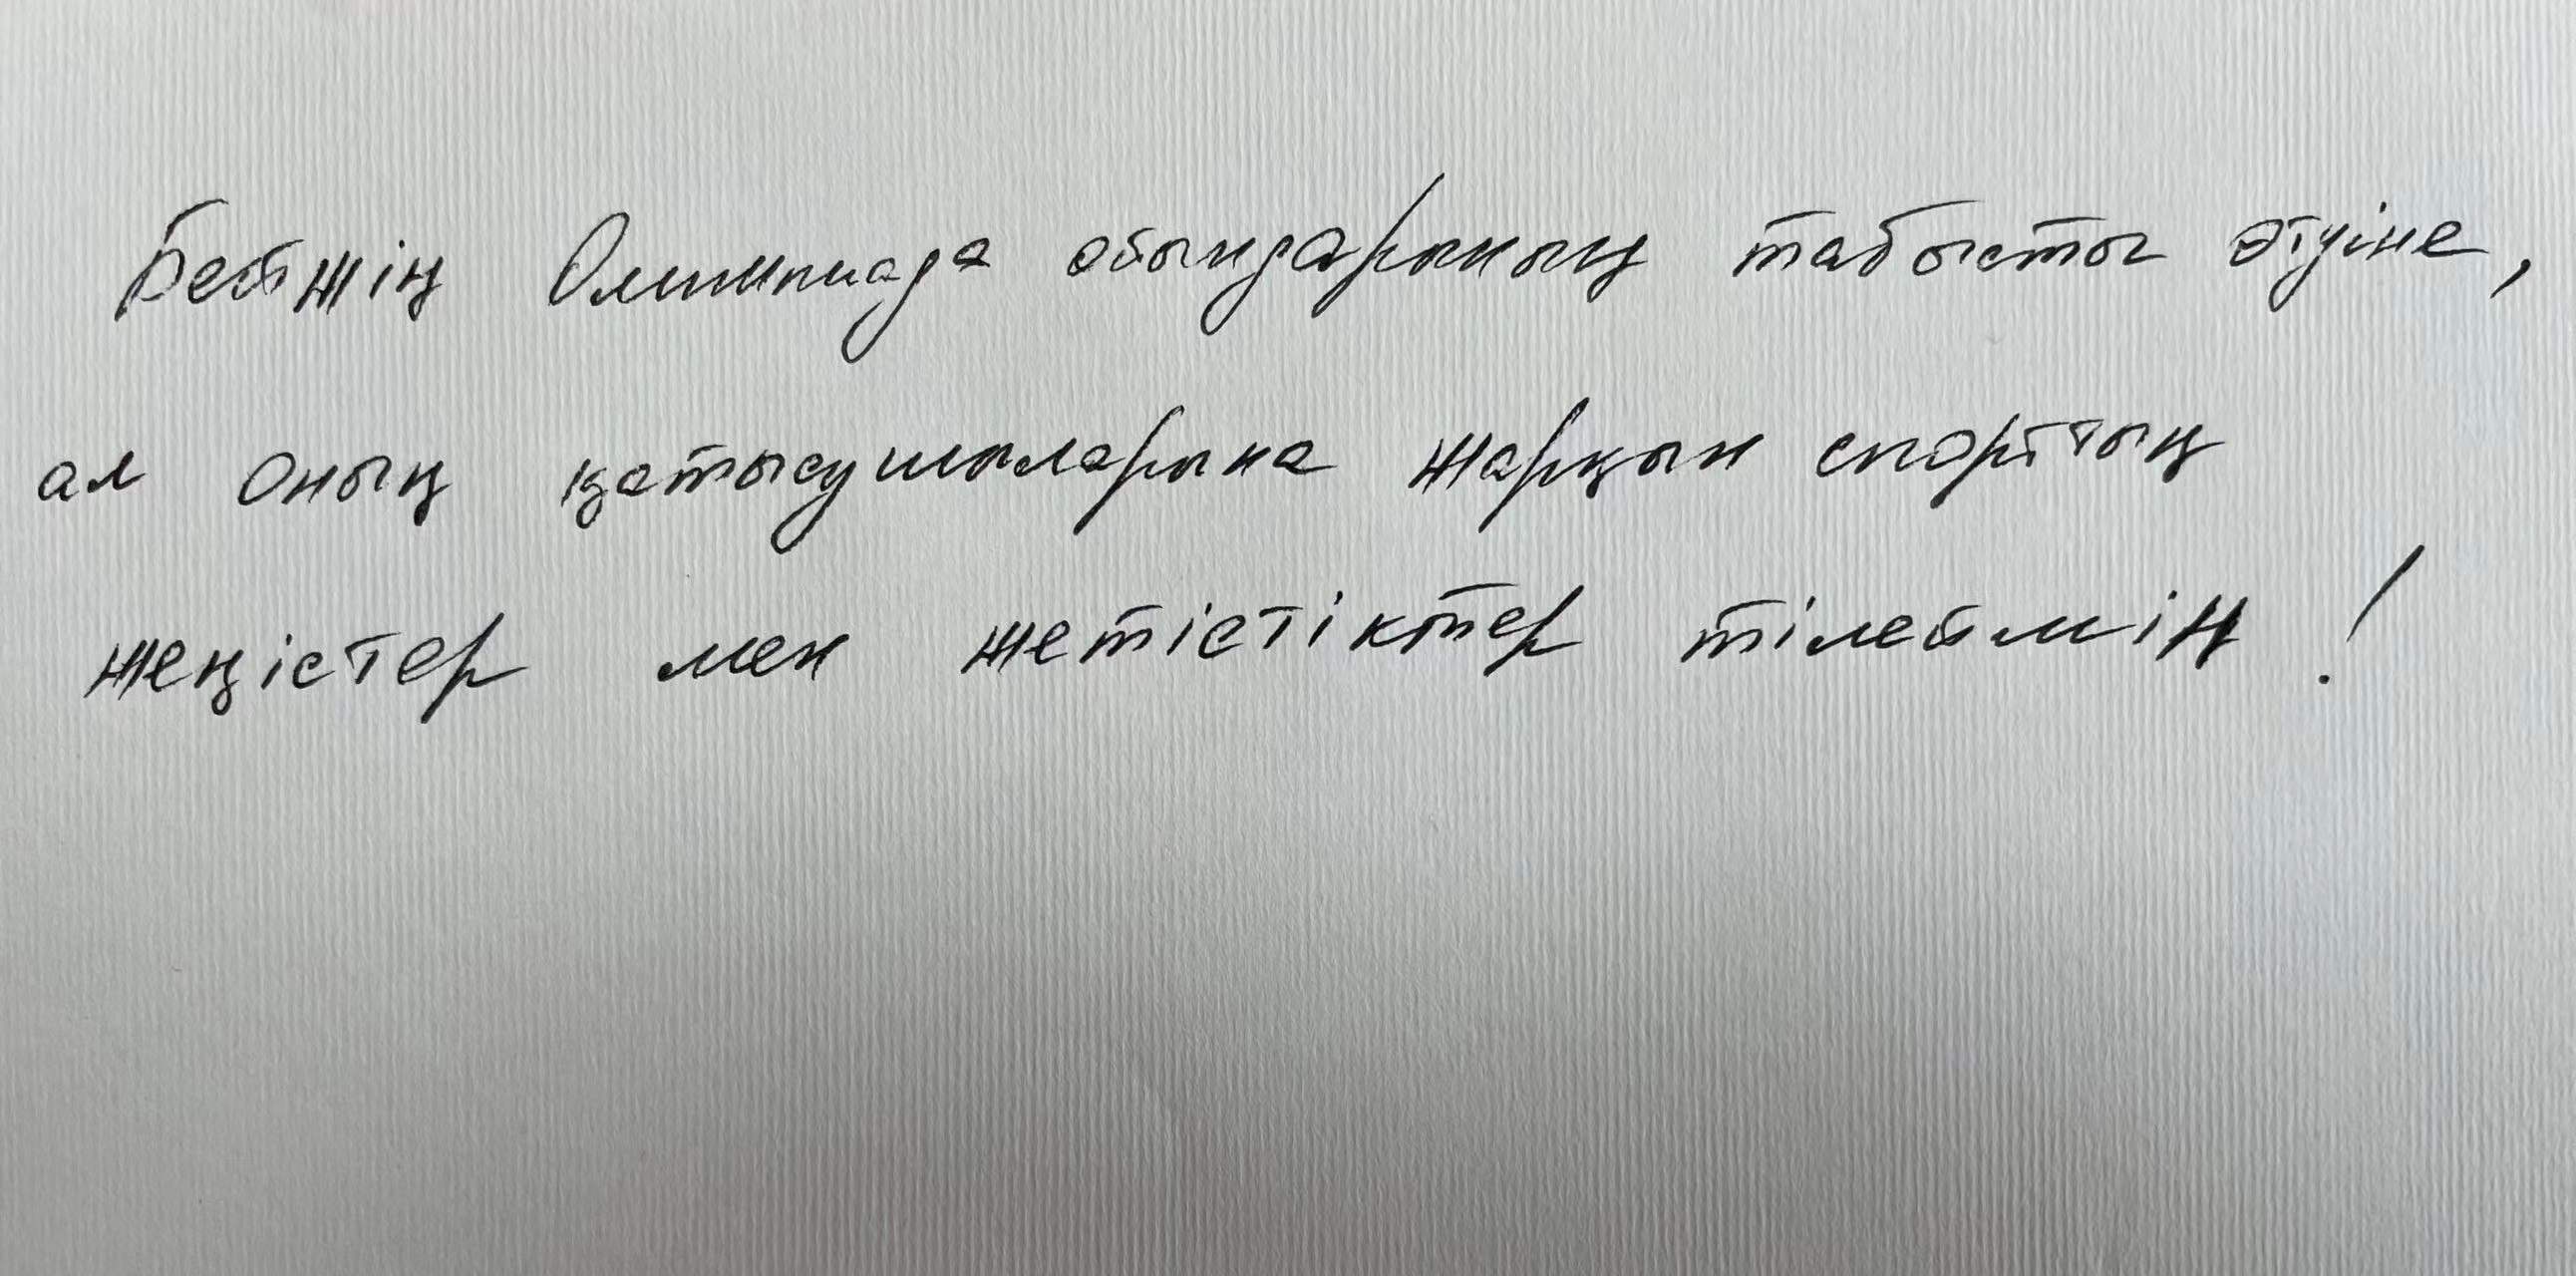 Бейжің Олимпиада ойындарының табысты өтуіне,
ал оның қатысушыларына жарқын спорттың
жеңістер мен жетістіктер тілеймін!